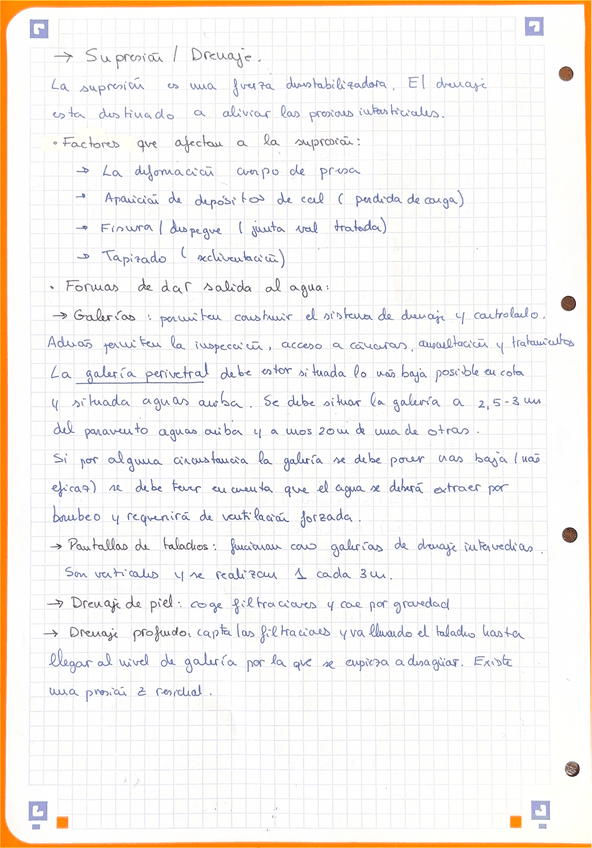 → Supresión / Drenaje.
La supresión es una fuerza desestabilizadora. El drenaje
esta destinado a aliviar las presiones intersticiales.
• Factores que afectan a la supresión:
→ La deformación cuerpo de presa
→ Aparición de depósitos de cal ( perdida de carga)
→ Fisura / despegue ( junta mal tratada)
→ Tapizado ( sedimentación)
• Formas de dar salida al agua:
→ Galerías : permiten construir el sistema de drenaje y controlarlo.
Además permiten la inspección, acceso a cámaras, auscultación y tratamientos
La galería perimetral debe estar situada lo más baja posible en cota
y situada aguas arriba. Se debe situar la galería a 2,5-3 m
del paramento aguas arriba y a unos 20m de una de otras.
Si por alguna circunstancia la galería se debe poner mas baja (más
eficaz) se debe tener en cuenta que el agua se deberá extraer por
bombeo y requerirá de ventilación forzada.
→ Pantallas de taladros: funcionan como galerías de drenaje intermedias.
Son verticales y se realizan 1 cada 3m.
→ Drenaje de piel: coge filtraciones y cae por gravedad
→ Drenaje profundo: capta las filtraciones y va llenando el taladro hasta
llegar al nivel de galería por la que se empieza a desaguar. Existe
una presión z residual.